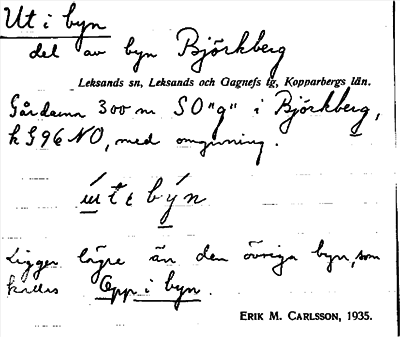 Ut i byn
del av byn Björkberg
Leksands sn, Leksands och Gagnefs tg, Kopparbergs län.
Gårdarna 300 m SO "g" i Björkberg,
k G96 NO, med omgivning.
ụ́t ɛ bỵ́n
Ligger lägre än den övriga byn, som
kallas Opp i byn.
ERIK M. CARLSSON, 1935.